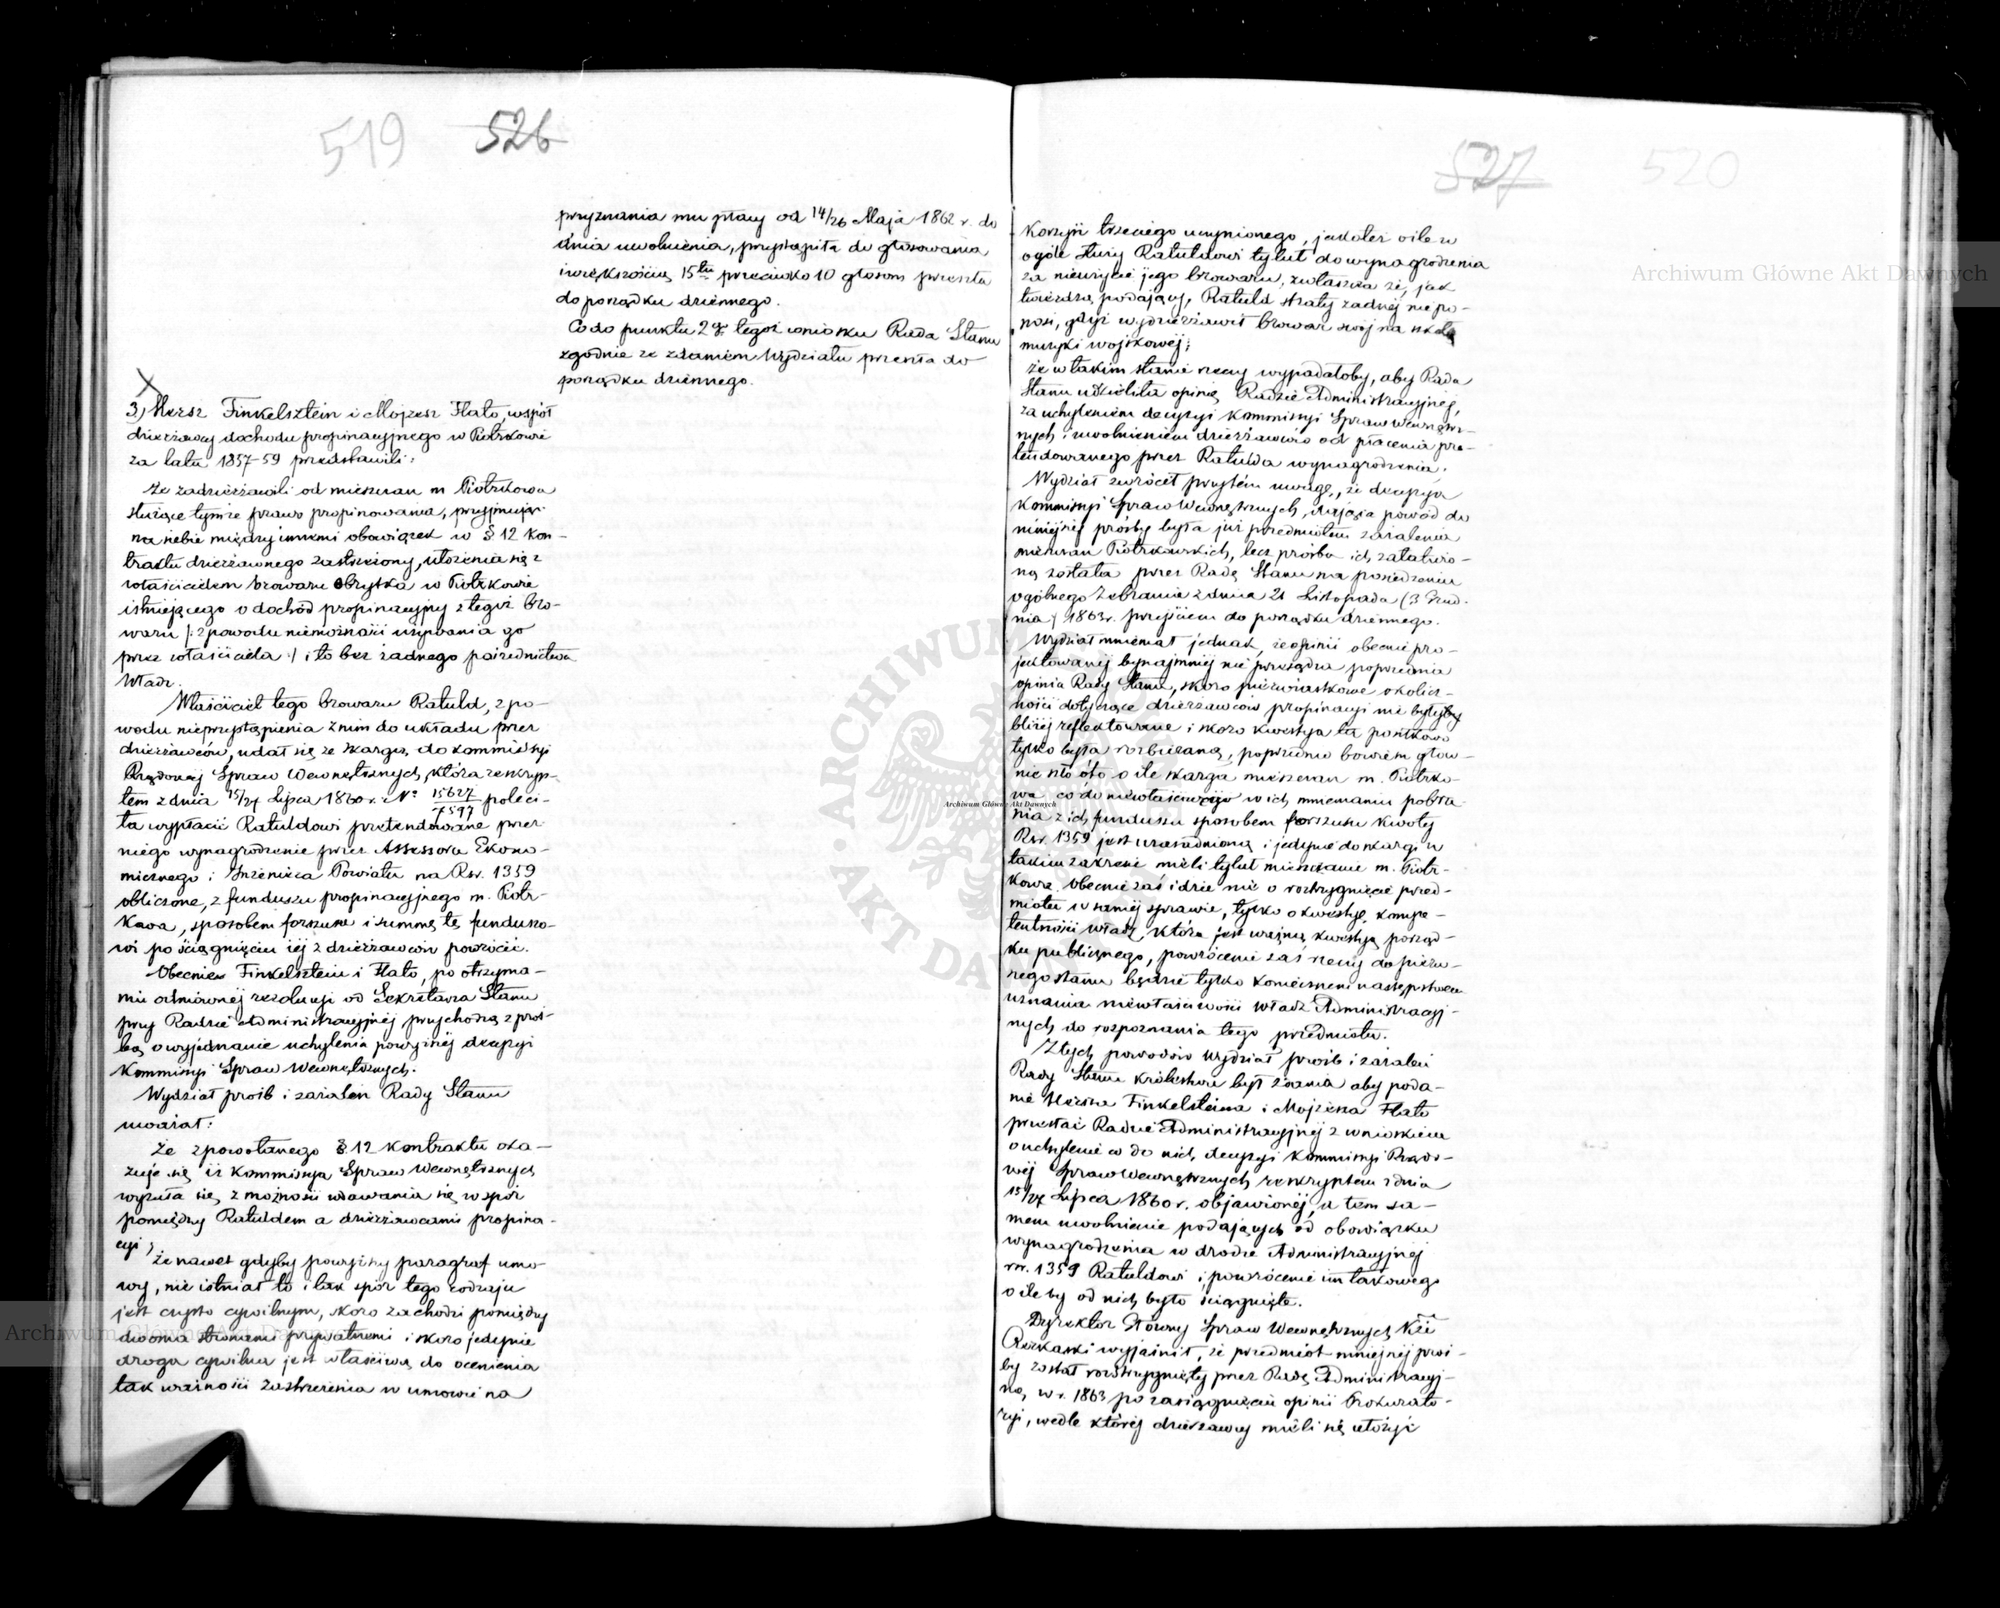 519 526
przyznania mu płacy od 14/26 Maja 1862 r. do
dnia uwolnienia, przystąpiła do głosowania
i większością 15tu przeciwko 10 głosom przeszła
do porządku dziennego.
Co do punktu 2go tegoż wniosku Rada Stanu
zgodnie ze zdaniem Wydziału przeszła do
porządku dziennego.
3) Hersz Finkelsztein i Mojżesz Flato, współ
dzierżawcy dochodu propinacyjnego w Piotrkowie
za lata 1857-59 przedstawili:
że zadzierżawili od mieszczan m Piotrkowa
służące tymże prawo propinowania, przyjmując
na siebie między innemi obowiązek w § 12 kon-
traktu dzierżawnego zastrzeżony, ułożenia się z
właścicielem browaru Obrytka w Piotrkowie
istniejącego o dochód propinacyjny z tegoż bro-
waru /: z powodu niemożności używania go
przez właściciela :/ i to bez żadnego pośrednictwa
Władz.
Właściciel tego browaru Ratuld, z po-
wodu nieprzystąpienia z nim do układu przez
dzierżawców, udał się ze skargą do Kommissyi
Rządowej Spraw Wewnętrznych, która reskryp-
tem z dnia 15/27 Lipca 1860 r. No 15627/7597 poleci-
ła wypłacić Ratuldowi pretendowane przez
niego wynagrodzenie przez Assessora Ekono-
micznego i Inżeniera Powiatu na Rsr. 1359
obliczone, z funduszu propinacyjnego m. Piotr-
kowa, sposobem forszusu i summę tę funduszo-
wi po ściągnięciu jéj z dzierżawców powrócić.
Obecnie Finkelsztein i Flato, po otrzyma-
niu odmównéj rezolucyi od Sekretarza Stanu
przy Radzie Administracyjnéj przychodzą z proś-
bą o wyjednanie uchylenia powyższéj decyzyi
Kommissyi Spraw Wewnętrznych.
Wydział próśb i zażaleń Rady Stanu
uważał:
że z powołanego § 12 kontraktu oka-
zuje się iż Kommissya Spraw Wewnętrznych
wyzuła się z możności wdawania się w spór
pomiędzy Ratuldem a dzierżawcami propina-
cyi;
że nawet gdyby powyższy paragraf umo-
wy, nie istniał to i tak spór tego rodzaju
jest czysto cywilnym, skoro zachodzi pomiędzy
dwoma stronami prywatnemi i skoro jedynie
droga cywilna jest właściwą do ocenienia
tak ważności zastrzeżenia w umowie na
527 520
korzyść trzeciego uczynionego, jakoteż o ile w
ogóle służy Ratuldowi tytuł do wynagrodzenia
za nieużycie jego browaru, zwłaszcza że, jak
twierdzą podający, Ratuld straty żadnéj nie po-
nosi, gdyż wydzierżawił browar swój na szkołę
muzyki wojskowéj;
że w takim stanie rzeczy wypadałoby, aby Rada
Stanu udzieliła opinię Radzie Administracyjnéj,
za uchyleniem decyzyi Kommissyi Spraw Wewnętrz-
nych i uwolnieniem dzierżawców od płacenia pre-
tendowanego przez Ratulda wynagrodzenia.
Wydział zwrócił przytém uwagę, że decyzya
Kommissyi Spraw Wewnętrznych, dająca powód do
niniejszéj prośby była już przedmiotem zażalenia
mieszczan Piotrkowskich, lecz prośba ich załatwio-
ną została przez Radę Stanu na posiedzeniu
ogólnego Zebrania z dnia 21 Listopada (3 Grud-
nia) 1863 r. przejściem do porządku dziennego.
Wydział mniemał jednak, że opinii obecnie pro-
jektowanéj bynajmniéj nie przesądza poprzednia
opinia Rady Stanu, skoro pierwiastkowe okolicz-
ności dotyczące dzierżawców propinacyi nie byłyby
bliżéj reflektowane i skoro kwestya ta positkowo
tylko była rozbieraną, poprzednio bowiem głów-
nie szło oto o ile skarga mieszczan m. Piotrko-
wa co do niewłaściwego w ich mniemaniu pobra
nia z ich funduszu sposobem forszusu kwoty
Rsr. 1359 jest uzasadnioną i jedynie do skargi w
takim zakresie mieli tytuł mieszczanie m. Piotr-
kowa. Obecnie zaś idzie nie o rozstrzygnięcie przed-
miotu w saméj sprawie, tylko o kwestyę kompe-
tentności władz, która jest ważną kwestyą porząd-
ku publicznego, powrócenie zaś rzeczy do pierw-
szego stanu będzie tylko koniecznem następstwem
uznania niewłaściwości Władz Administracyj-
nych do rozpoznania tego przedmiotu.
Z tych powodów Wydział próśb i zażaleń
Rady Stanu Królestwa był zdania aby poda-
nie Hersza Finkelsteina i Mojżesza Flato
przesłać Radzie Administracyjnéj z wnioskiem
o uchylenie co do nich decyzyi Kommissyi Rządo-
wéj Spraw Wewnętrznych reskryptem z dnia
15/27 Lipca 1860 r. objawionéj, a tem sa-
mem uwolnienie podających od obowiązku
wynagrodzenia w drodze Administracyjnéj
rsr. 1359 Ratuldowi i powrócenie im takowego
o ile by od nich było ściągnięte.
Dyrektor Główny Spraw Wewnętrznych
wyjaśnił, że przedmiot niniejszéj proś-
by został rozstrzygnięty przez Radę Administracyj-
ną w r. 1863 po zasiągnięciu opinii Prokurato-
ryi, wedle któréj dzierżawcy mieli się ułożyć
Archiwum Główne Akt Dawnych
Archiwum Główne Akt Dawnych
Archiwum Główne Akt Dawnych
ARCHIWUM GŁÓWNE AKT DAWNYCH